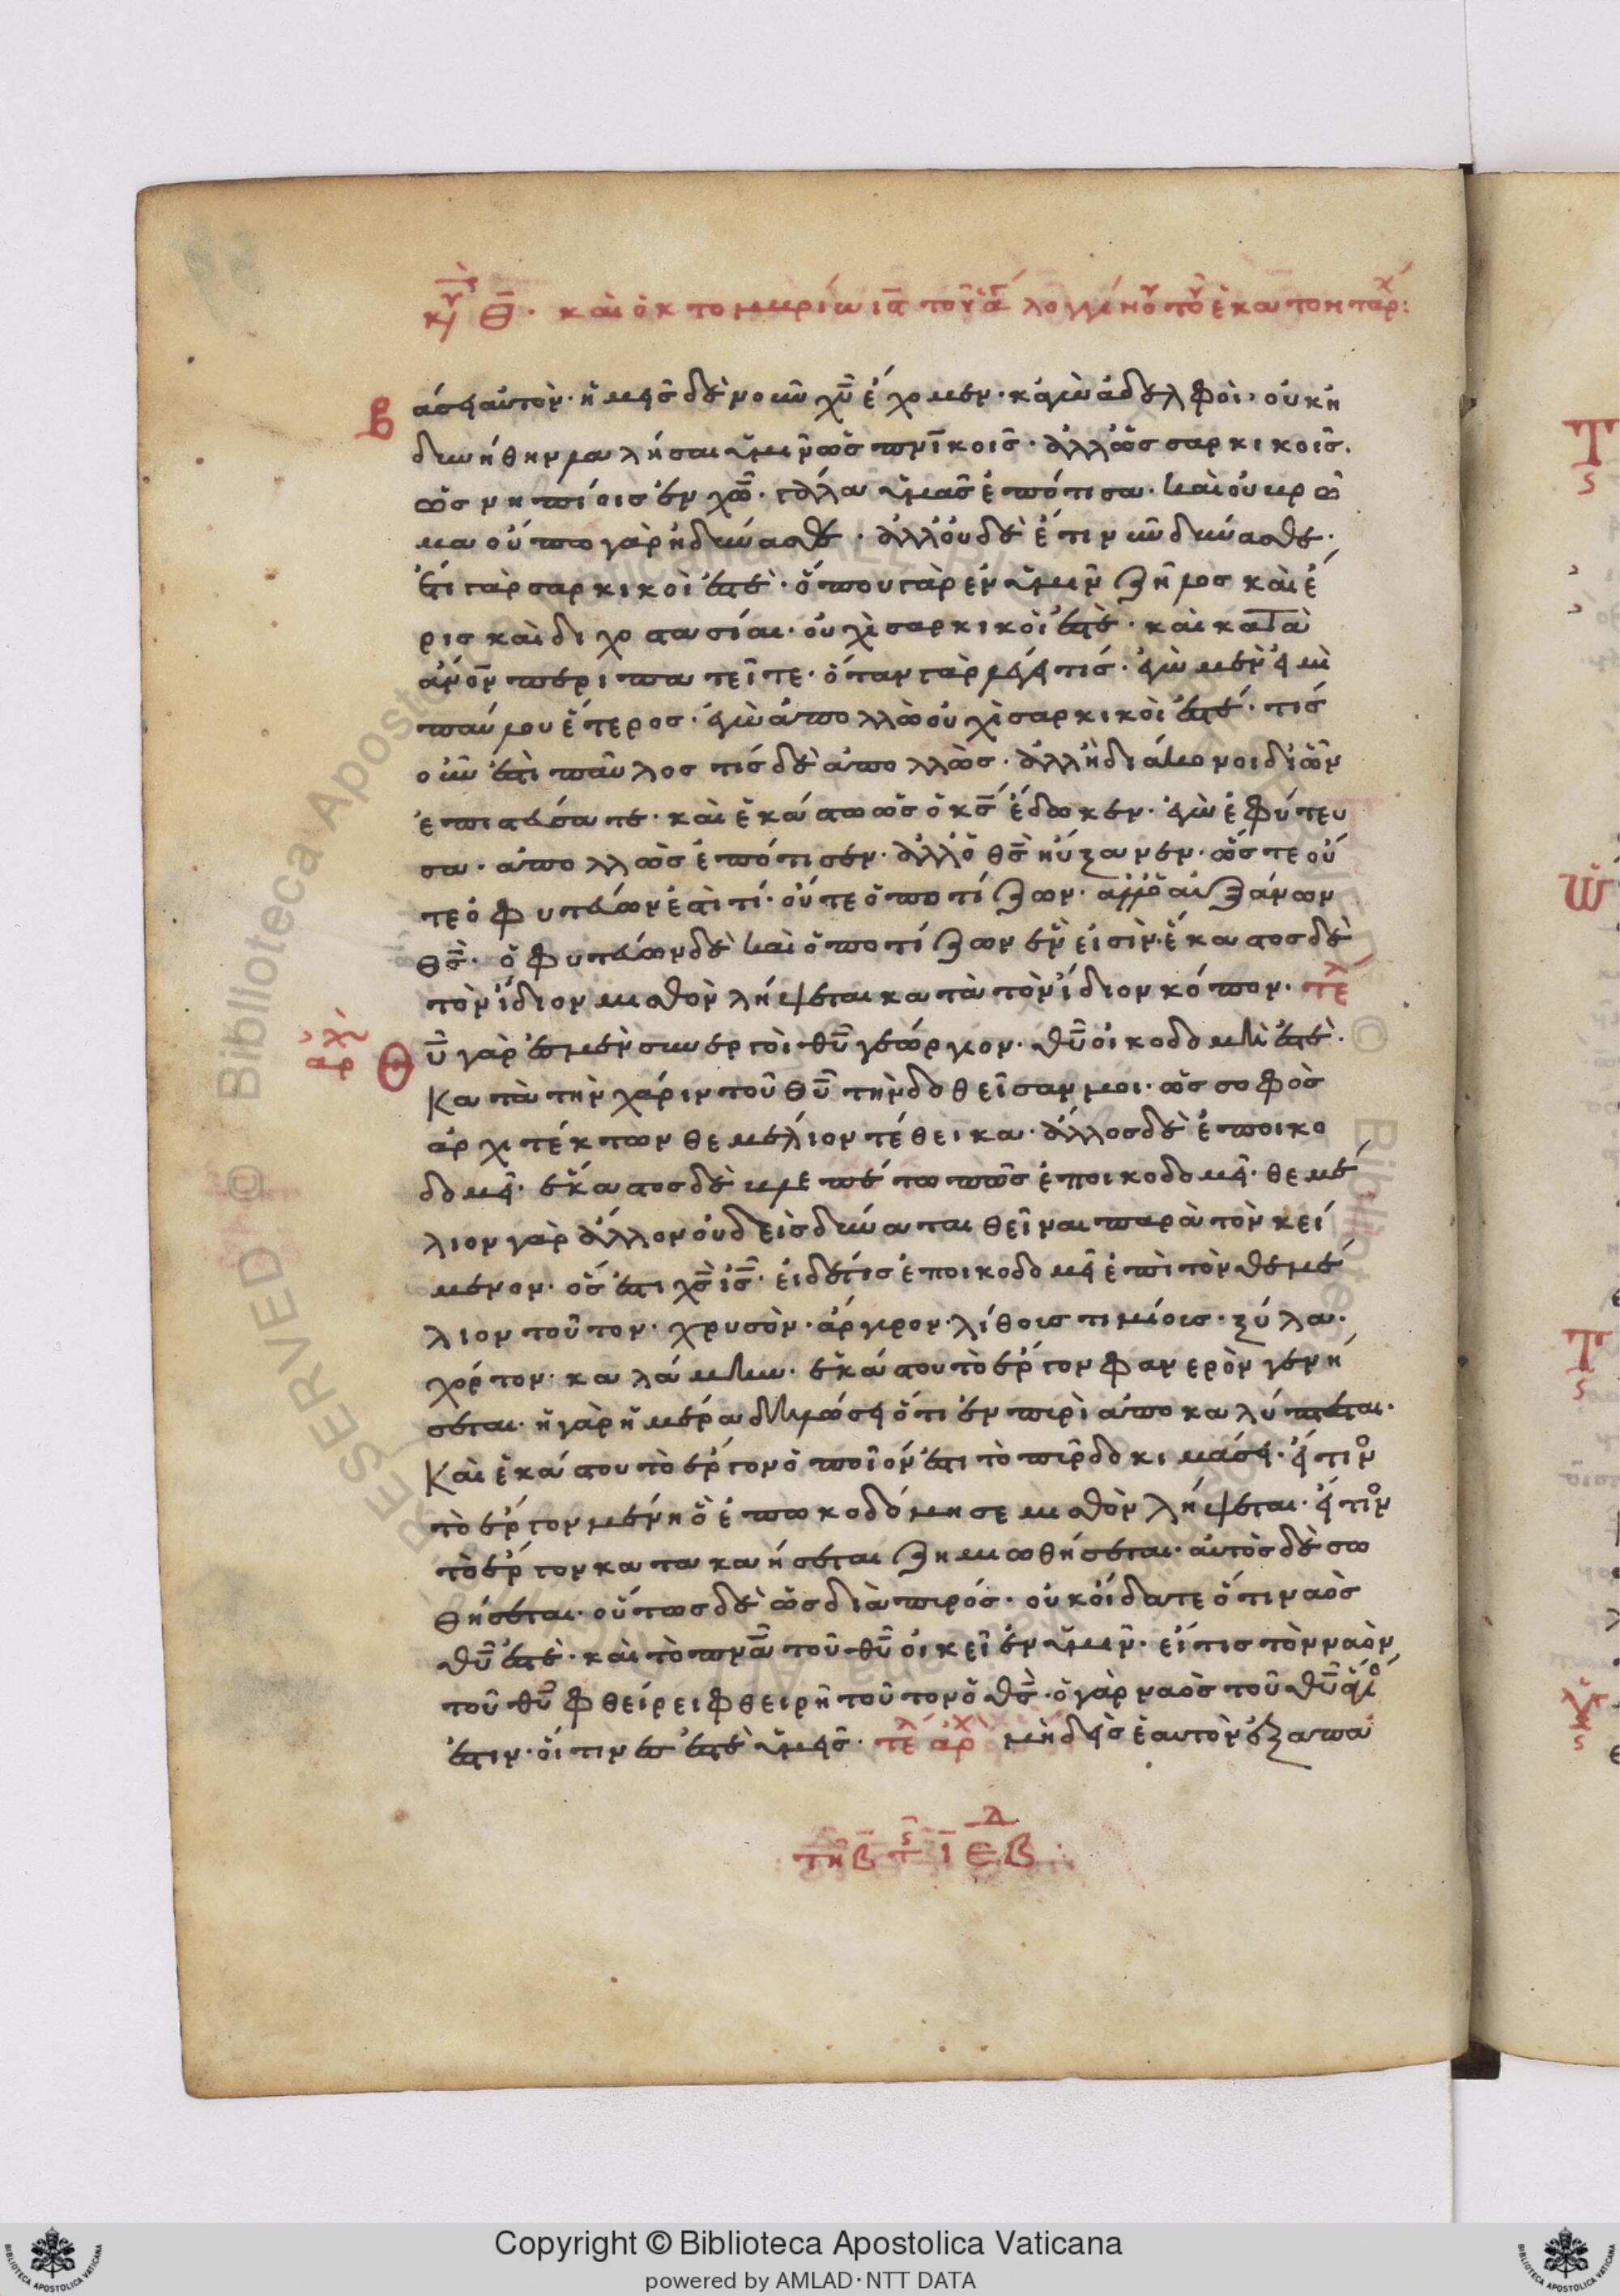 κυ θ̅· καὶ ὀκτομβρίω ι̅ς̅ τοῦ ἁγ λογγίνου τοῦ ἑκατοντάρχ:
β άσει αὐτὸν· ἡμεῖς δὲ νοῦν χ̅υ̅ ἔχομεν· κἀγὼ ἀδελφοὶ· οὐκ ἠ
δυνήθην λαλῆσαι ὑμῖν ὡς π̅ν̅ικοῖς· ἀλλ' ὡς σαρκικοῖς.
ὡς νηπίοις ἐν χ̅ω̅· γάλα ὑμᾶς ἐπότισα· καὶ οὐ βρῶ
μα οὔπω γὰρ ἠδύνασθε· ἀλλ' οὐδὲ ἔτι νῦν δύνασθε·
ἔτι γὰρ σαρκικοί ἐστὲ· ὅπου γὰρ ἐν ὑμῖν ζῆλος καὶ ἔ
ρις καὶ διχοστασίαι· οὐχὶ σαρκικοὶ ἐστὲ· καὶ κατὰ
ἀν̅ο̅ν περιπατεῖτε· ὅταν γὰρ λέγει τίς· ἐγὼ μὲν εἰμὶ
παύλου ἕτερος· ἐγὼ ἀπολλὼ οὐχὶ σαρκικοὶ ἐστέ· τίς
οὖν ἐστὶ παῦλος τίς δὲ ἀπολλὼς· ἀλλ' ἢ διάκονοι δι' ὧν
ἐπιστεύσατε· καὶ ἑκάστω ὡς ὁ κ̅ς̅ ἔδωκεν· ἐγὼ ἐφύτευ
σα· ἀπολλὼς ἐπότισεν· ἀλλ' ὁ θ̅ς̅ ηὔξανεν· ὥστε οὔ
τε ὁ φυτεύων ἐστί τί· οὔτε ὁ ποτίζων· ἀλλ' ὁ αὐξάνων
θ̅ς̅· ὁ φυτεύων δὲ καὶ ὁ ποτίζων ἕν εἰσὶν· ἕκαστος δὲ
τὸν ἴδιον μισθὸν λήψεται κατὰ τὸν ἴδιον κόπον· τελ
ἀρχ Θ υ̅ γὰρ ἐσμὲν συνεργοὶ· θ̅υ̅ γεώργιον· θ̅υ̅ οἰκοδομὴ ἐστὲ·
Κατὰ τὴν χάριν τοῦ θ̅υ̅ τὴν δοθεῖσαν μοι· ὡς σοφὸς
ἀρχιτέκτων θεμέλιον τέθεικα· ἄλλος δὲ ἐποικο
δομεῖ· ἕκαστος δὲ βλεπέτω πῶς ἐποικοδομεῖ· θεμέ
λιον γὰρ ἄλλον οὐδεὶς δύναται θεῖναι παρὰ τὸν κεί
μενον· ὅς ἐστι χ̅ς̅ ἰ̅ς̅· εἰ δέ τις ἐποικοδομεῖ ἐπὶ τὸν θεμέ
λιον τοῦτον· χρυσὸν· ἄργυρον· λίθοις τιμίοις· ξύλα·
χόρτον· καλάμην· ἑκάστου τὸ ἔργον φανερὸν γενή
σεται· ἡ γὰρ ἡμέρα δηλώσει ὅτι ἐν πυρὶ ἀποκαλύπτεται·
Καὶ ἑκάστου τὸ ἔργον ὁποῖον ἐστι τὸ πῦρ δοκιμάσει· εἴ τινο
τὸ ἔργον μένη ὃ ἐπωκοδόμησε μισθὸν λήψεται· εἴ τινο
τὸ ἔργον κατακαήσεται ζημιωθήσεται· αὐτὸς δὲ σω
θήσεται· οὕτως δὲ ὡς διὰ πυρός· οὐκ οἴδατε ὅτι ναὸς
θ̅υ̅ ἐστὲ· καὶ τὸ π̅ν̅α̅ τοῦ θ̅υ̅ οἰκεῖ ἐν ὑμῖν· εἴ τις τὸν ναὸν
τοῦ θ̅υ̅ φθείρει φθειρῆ τοῦτον ὁ θ̅ς̅· ὁ γὰρ ναὸς τοῦ θ̅υ̅ ἅγιο
ἐστιν· οἵτινες ἐστὲ ὑμεῖς· τελ ἀρχ μηδεὶς ἑαυτὸν ἐξαπα
τῆ β̅ τ̅ς ι̅ ἑβδ: